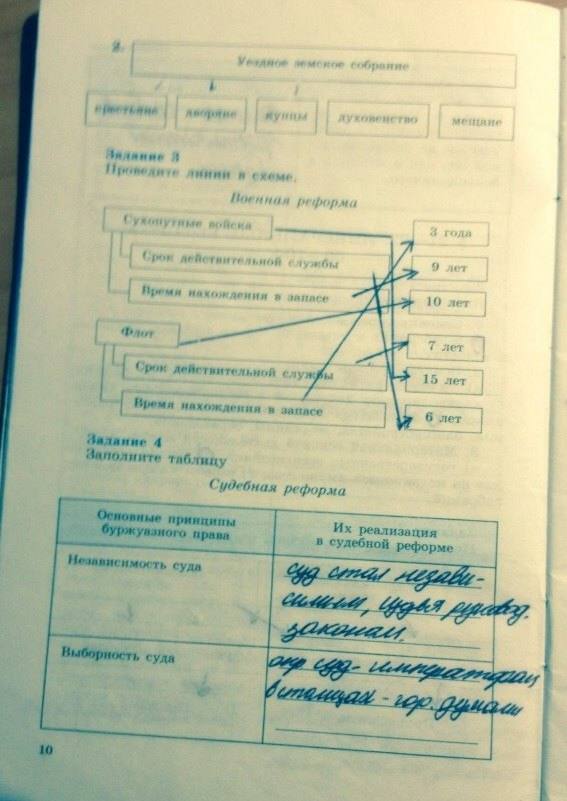 2.
Уездное земское собрание
крестьяне дворяне купцы духовенство мещане
Задание 3
Проведите линии в схеме.
Военная реформа
Сухопутные войска
3 года
Срок действительной службы
9 лет
Время нахождения в запасе
10 лет
Флот
7 лет
Срок действительной службы
15 лет
Время нахождения в запасе
6 лет
Задание 4
Заполните таблицу
Судебная реформа
Основные принципы
буржуазного права
Их реализация
в судебной реформе
Независимость суда
суд стал незави-
симым, судья руковод.
законом.
Выборность суда
окр суд - императором
в столицах - гор. думами
10